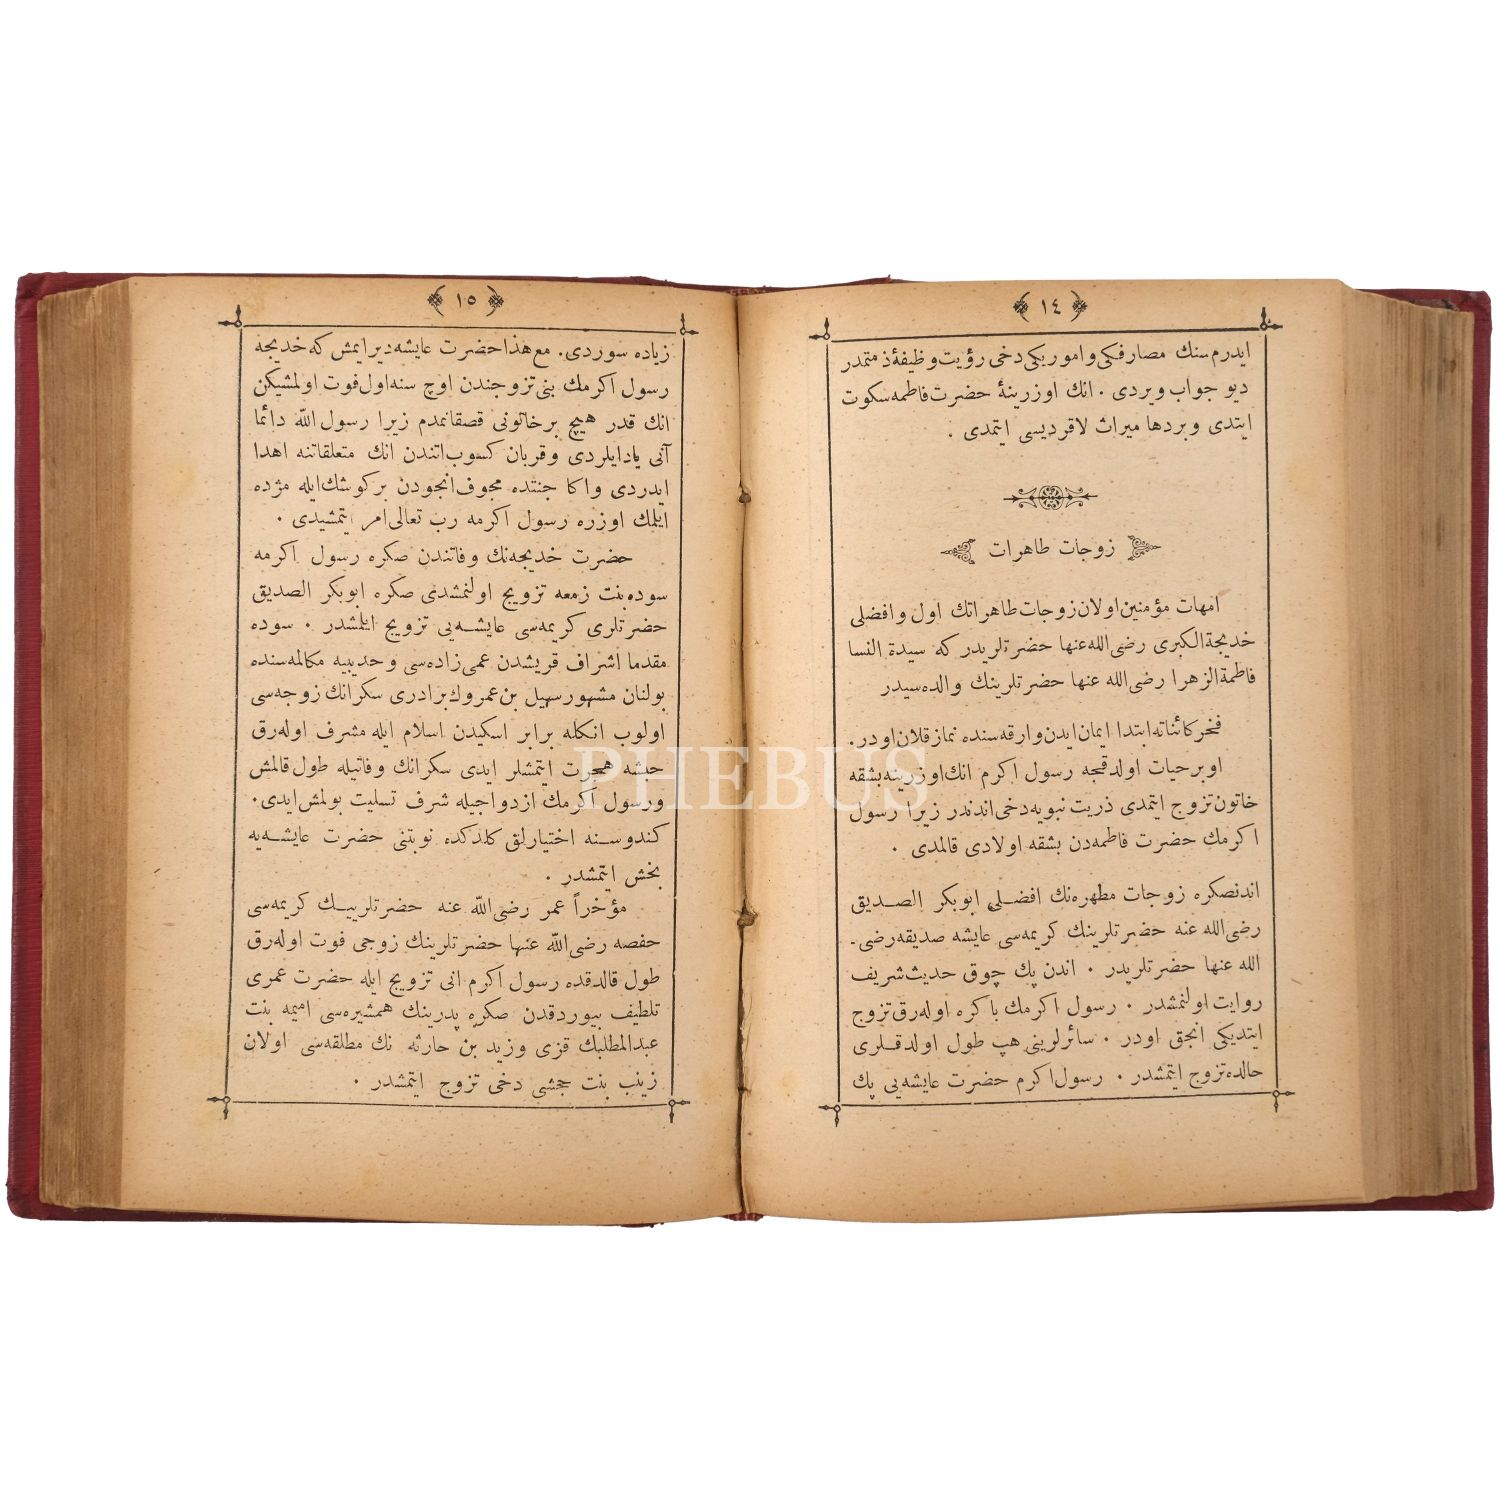 ﴿ ١٤ ﴾
ايدرم سنك مصارفكى و اموريكى دخى رؤيت وظيفۀ ذمتمدر
ديو جواب ويردى . انك اوزرينۀ حضرت فاطمه سكوت
ايتدى و بردها ميراث لاقرديسى ايتمدى .
زوجات طاهرات
امهات مؤمنين اولان زوجات طاهراتك اول و افضلى
خديجة الكبرى رضى الله عنها حضرتلريدر كه سيدة النسا
فاطمة الزهرا رضى الله عنها حضرتلرينك والده سيدر
فخر كائناته ابتدا ايمان ايدن و ارقه سنده نماز قلان اودر.
او بر حيات اولدقجه رسول اكرم انك اوزرينه بشقه
خاتون تزوج ايتمدى ذريت نبويه دخى اندندر زيرا رسول
اكرمك حضرت فاطمه دن بشقه اولادى قالمدى .
اندنصكره زوجات مطهره نك افضلى ابوبكر الصديق
رضى الله عنه حضرتلرينك كريمه سى عايشه صديقه رضى-
الله عنها حضرتلريدر . اندن پك چوق حديث شريف
روايت اولنمشدر . رسول اكرمك باكره اوله رق تزوج
ايتديكى انجق اودر . سائرلرينى هپ طول اولدقلرى
حالده تزوج ايتمشدر . رسول اكرم حضرت عايشه يى پك
﴿ ١٥ ﴾
زياده سوردى. مع هذا حضرت عايشه دير ايمش كه خديجه
رسول اكرمك بنى تزوجندن اوچ سنه اول فوت اولمشيكن
انك قدر هيچ بر خاتونى قصقانمدم زيرا رسول الله دائما
آنى ياد ايلردى و قربان كسوب اتندن انك متعلقاتنه اهدا
ايدردى و اكا جنتده مجوف انجودن بر كوشك ايله مژده
ايلمك اوزره رسول اكرمه رب تعالى امر ايتمشيدى .
حضرت خديجه نك وفاتندن صكره رسول اكرمه
سوده بنت زمعه تزويج اولنمشدى صكره ابوبكر الصديق
حضرتلرى كريمه سى عايشه يى تزويج ايلمشدر . سوده
مقدما اشراف قريشدن عمى زاده سى و حديبيه مكالمه سنده
بولنان مشهور سهيل بن عمروك برادرى سكرانك زوجه سى
اولوب انكله برابر اسكيدن اسلام ايله مشرف اوله رق
حبشه هجرت ايتمشلر ايدى سكرانك وفاتيله طول قالمش
و رسول اكرمك ازدواجيله شرف تسليت بولمش ايدى.
كندوسنه اختيارلق كلدكده نوبتنى حضرت عايشه يه
بخش ايتمشدر .
مؤخراً عمر رضى الله عنه حضرتلرينك كريمه سى
حفصه رضى الله عنها حضرتلرينك زوجى فوت اوله رق
طول قالدقده رسول اكرم انى تزويج ايله حضرت عمرى
تلطيف بيوردقدن صكره پدرينك همشيره سى اميمه بنت
عبدالمطلبك قزى و زيد بن حارثه نك مطلقه سى اولان
زينب بنت جحشى دخى تزوج ايتمشدر .
PHEBUS